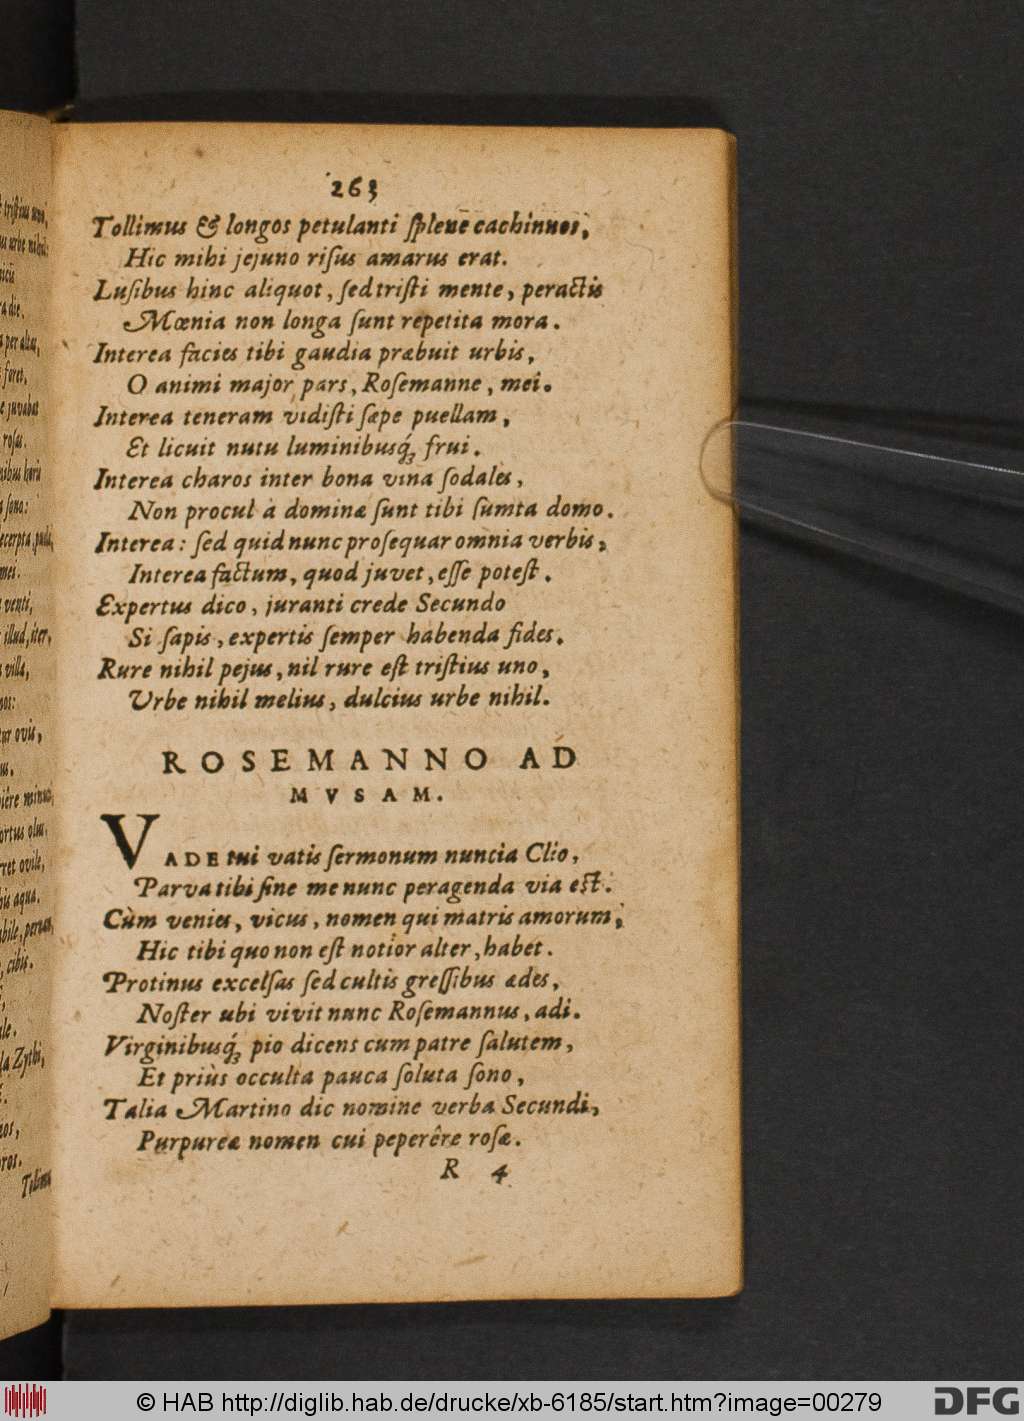 263
Tollimus & longos petulanti ſplene cachinnos,
Hic mihi jejuno riſus amarus erat.
Luſibus hinc aliquot, ſed triſti mente, peractis
Mœnia non longa ſunt repetita mora.
Interea facies tibi gaudia præbuit urbis,
O animi major pars, Roſemanne, mei.
Interea teneram vidiſti ſæpe puellam,
Et licuit nutu luminibusq́ꝫ frui.
Interea charos inter bona vina ſodales,
Non procul à dominæ ſunt tibi ſumta domo.
Interea: ſed quid nunc proſequar omnia verbis,
Interea factum, quod juvet, eſſe poteſt.
Expertus dico, juranti crede Secundo
Si ſapis, expertis ſemper habenda fides.
Rure nihil pejus, nil rure eſt triſtius uno,
Urbe nihil melius, dulcius urbe nihil.
ROSEMANNO AD
MVSAM.
VADE tui vatis ſermonum nuncia Clio,
Parva tibi ſine me nunc peragenda via eſt.
Cùm venies, vicus, nomen qui matris amorum,
Hic tibi quo non eſt notior alter, habet.
Protinus excelſas ſed cultis greſſibus ædes,
Noſter ubi vivit nunc Roſemannus, adi.
Virginibusq́ꝫ pio dicens cum patre ſalutem,
Et priùs occulta pauca ſoluta ſono,
Talia Martino dic nomine verba Secundi,
Purpureæ nomen cui peperêre roſæ.
R 4
© HAB http://diglib.hab.de/drucke/xb-6185/start.htm?image=00279
DFG